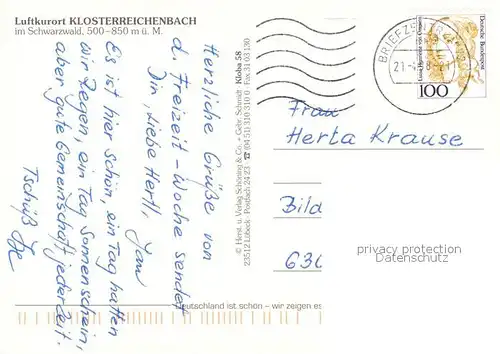 Luftkurort KLOSTERREICHENBACH
im Schwarzwald, 500–850 m ü. M.
Herzliche Grüße von
d. Freizeit – Woche sendet
Dir, liebe Hertl,
Es ist hier schön, ein Tag hatten
wir Regen, ein Tag Sonnenschein,
aber gute Gemeinschaft jederzeit.
Tschüß
© Horst u. Verlag Schöning & Co. + Gebr. Schmidt Kloba 58
23512 Lübeck · Postfach 24 23 ☎ (04 51) 310 310 · Fax 31 03 130
BRIEFZENTRUM
21.-4.
Deutsche Bundespost
100
Frau
Herta Krause
Bild
630
privacy protection
Datenschutz
Deutschland ist schön – wir zeigen es